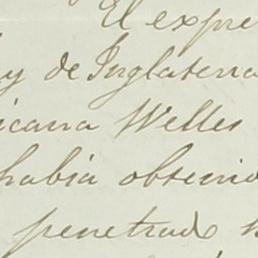 El expre
y de Inglaterra
icana Welles
habia obser
penetrado